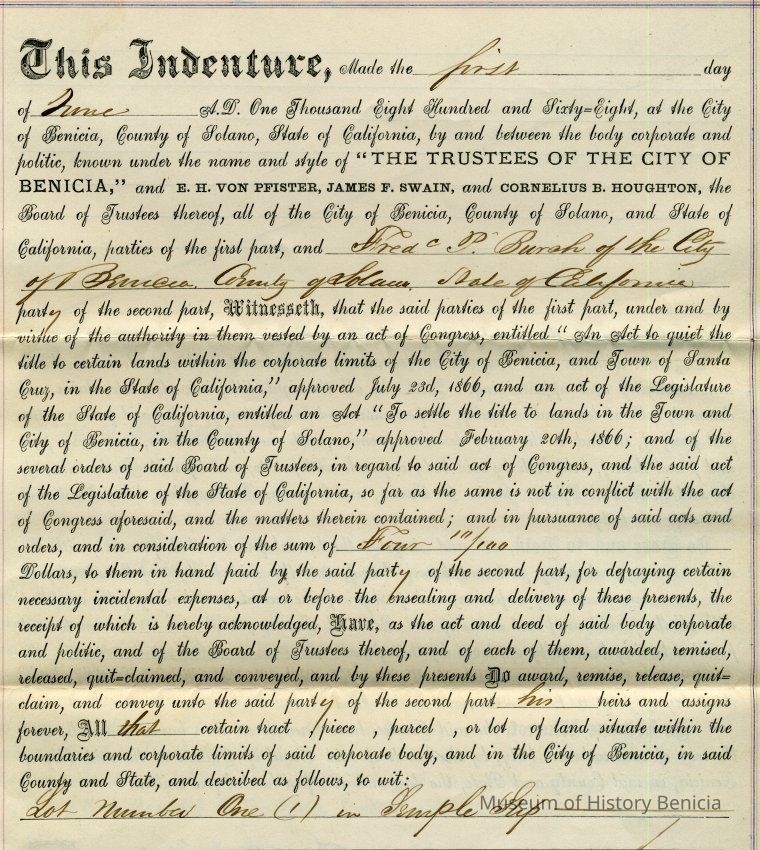 This Indenture, Made the first day
of June A.D. One Thousand Eight Hundred and Sixty=Eight, at the City
of Benicia, County of Solano, State of California, by and between the body corporate and
politic, known under the name and style of "THE TRUSTEES OF THE CITY OF
BENICIA," and E. H. VON PFISTER, JAMES F. SWAIN, and CORNELIUS B. HOUGHTON, the
Board of Trustees thereof, all of the City of Benicia, County of Solano, and State of
California, parties of the first part, and Fred c P. of the City
of Benicia. County of Solano. State of California
party of the second part, Witnesseth, that the said parties of the first part, under and by
virtue of the authority in them vested by an act of Congress, entitled "An Act to quiet the
title to certain lands within the corporate limits of the City of Benicia, and Town of Santa
Cruz, in the State of California," approved July 23d, 1866, and an act of the Legislature
of the State of California, entitled an Act "To settle the title to lands in the Town and
City of Benicia, in the County of Solano," approved February 20th, 1866; and of the
several orders of said Board of Trustees, in regard to said act of Congress, and the said act
of the Legislature of the State of California, so far as the same is not in conflict with the act
of Congress aforesaid, and the matters therein contained; and in pursuance of said acts and
orders, and in consideration of the sum of Four 10/100
Dollars, to them in hand paid by the said party of the second part, for defraying certain
necessary incidental expenses, at or before the ensealing and delivery of these presents, the
receipt of which is hereby acknowledged, Have, as the act and deed of said body corporate
and politic, and of the Board of Trustees thereof, and of each of them, awarded, remised,
released, quit=claimed, and conveyed, and by these presents Do award, remise, release, quit=
claim, and convey unto the said party of the second part his heirs and assigns
forever, All that certain tract , piece , parcel , or lot of land situate within the
boundaries and corporate limits of said corporate body, and in the City of Benicia, in said
County and State, and described as follows, to wit:
Lot Number One (1) in Temple
Museum of History Benicia